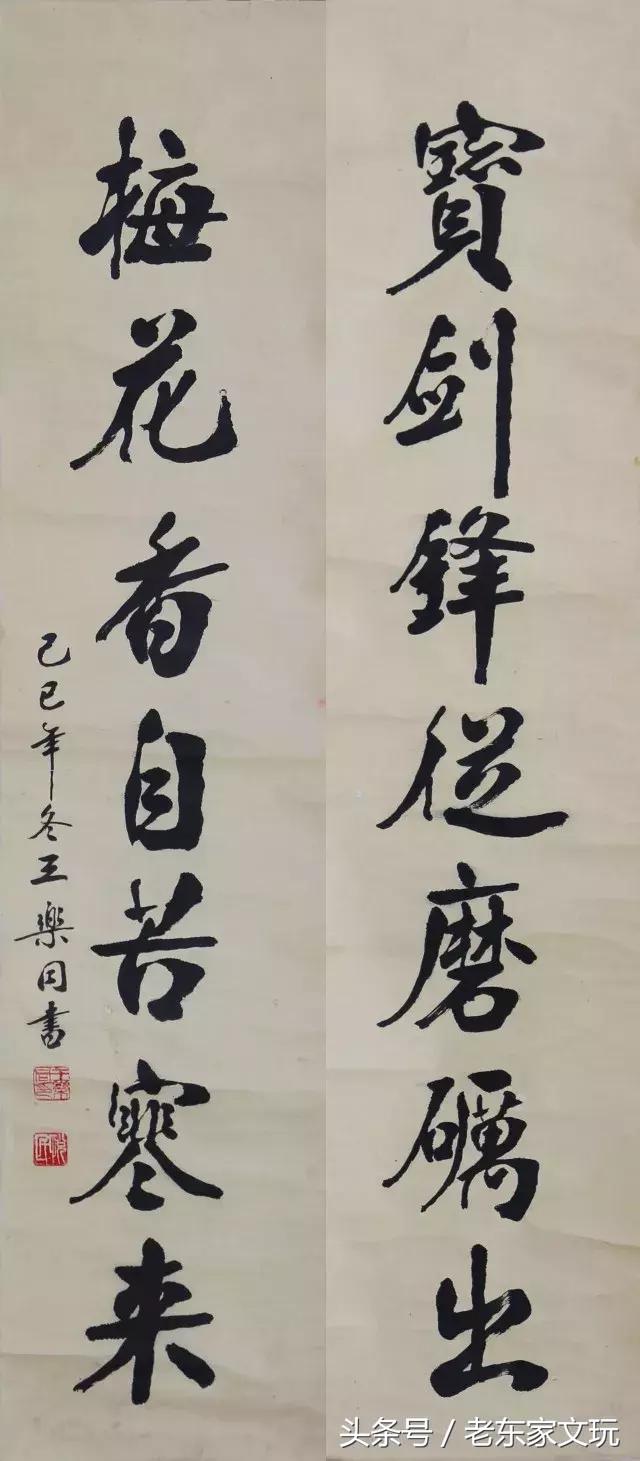 寶劍鋒從磨礪出
梅花香自苦寒來
己巳年冬王樂同書
头条号 / 老东家文玩